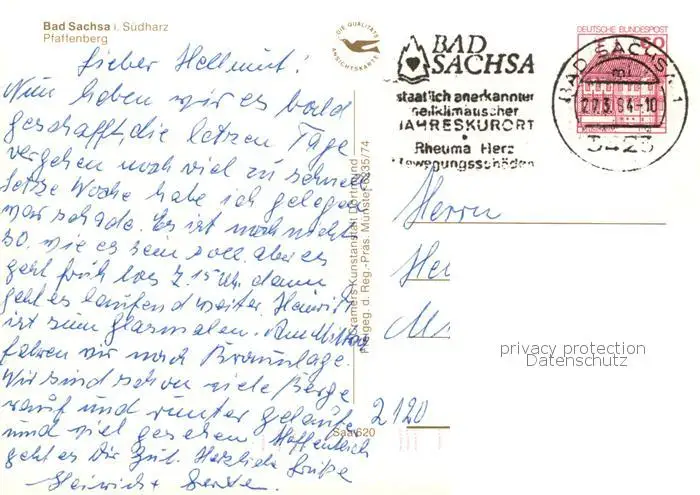 Bad Sachsa i. Südharz
Pfaffenberg
Lieber Hellmut!
Nun haben wir es bald
geschafft, die letzen Tage
vergehen noch viel zu schnell
letze Woche habe ich gelegen
war schade. Es ist noch nicht
so. wie es sein soll. aber es
geht früh los 7.15 Uhr dann
geht es laufend weiter. Heinrich
ist zum Glasmalen. Am Mittwoch
fahren wir nach Braunlage.
Wir sind schon viele Berge
rauf und runter gelaufen
und viel gesehen. Hoffentlich
geht es Dir gut. Herzliche Grüße
Heinrich +
DIE QUALITÄTS
ANSICHTSKARTE
Cramers Kunstanstalt Dortmund
Freigeg. d. Reg.-Präs. Münster 6235/74
Saa 620
BAD
SACHSA
staatlich anerkannter
heilklimatischer
JAHRESKURORT
Rheuma Herz
Bewegungsschäden
DEUTSCHE BUNDESPOST
60
BAD SACHSA 1
ml
27.3.84-10
3423
Herrn
2120
privacy protection
Datenschutz